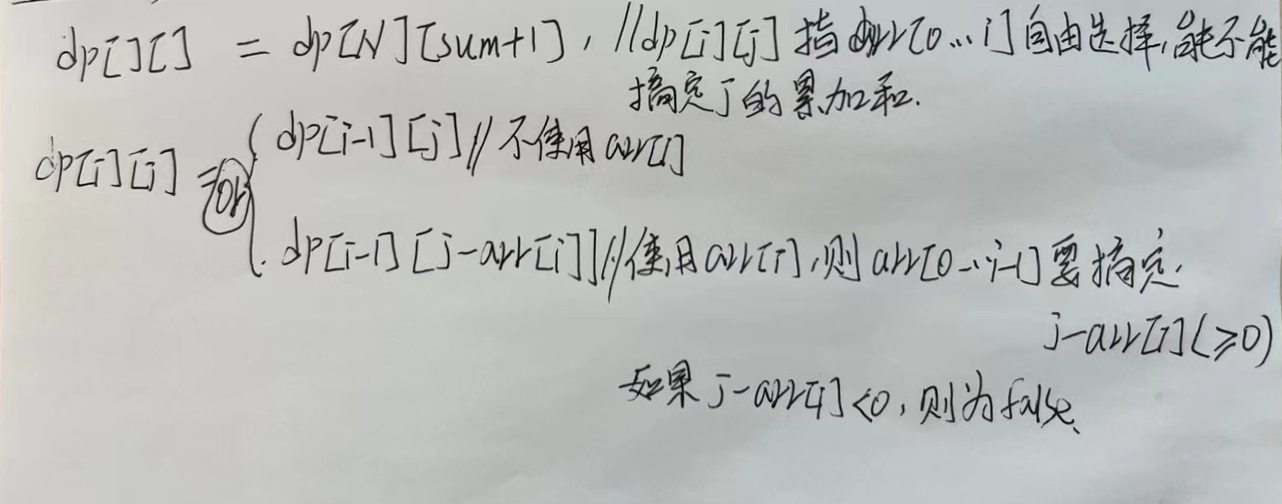 dp[][] = dp[N][sum+1], //dp[i][j] 指 arr[0...i] 自由选择,能不能
搞定j的累加和.
dp[i-1][j] // 不使用 arr[i]
dp[i][j] = or
dp[i-1][j-arr[i]] // 使用 arr[i], 则 arr[0...i-1] 要搞定
j-arr[i] (≥0)
如果 j-arr[i]<0, 则为 false.